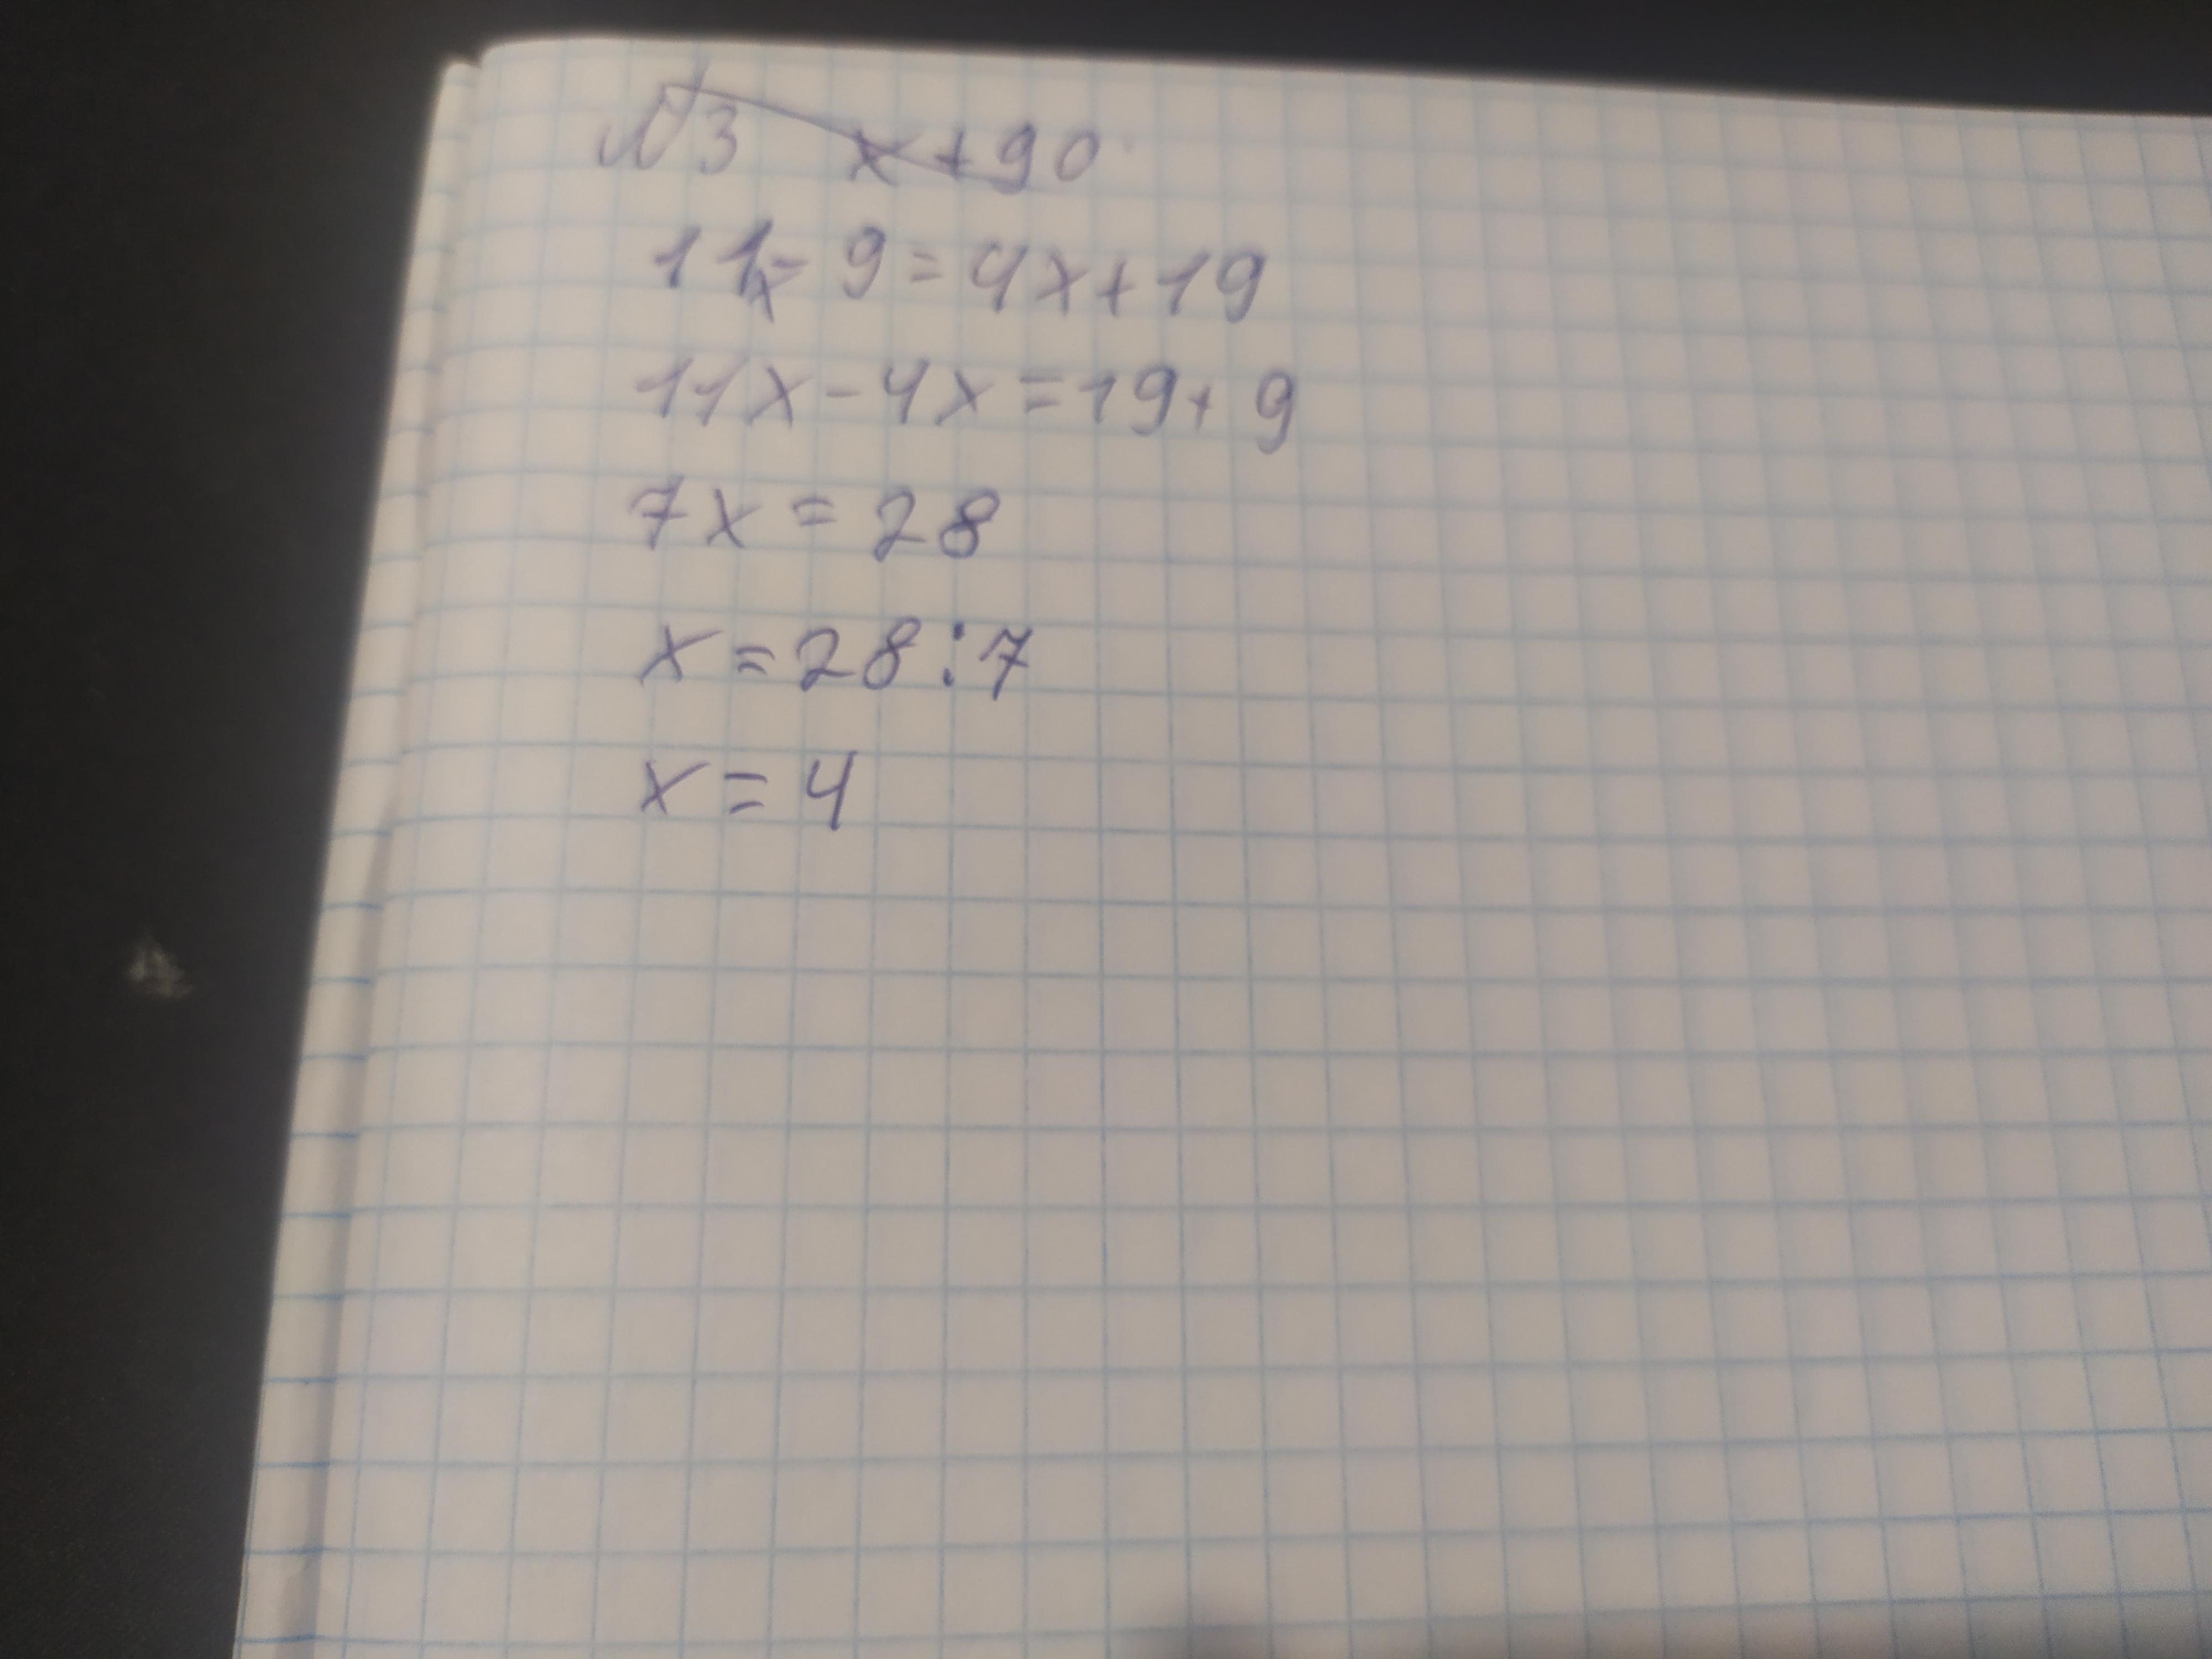 №3 x+90
11x-9=4x+19
11x-4x=19+9
7x=28
x=28:7
x=4